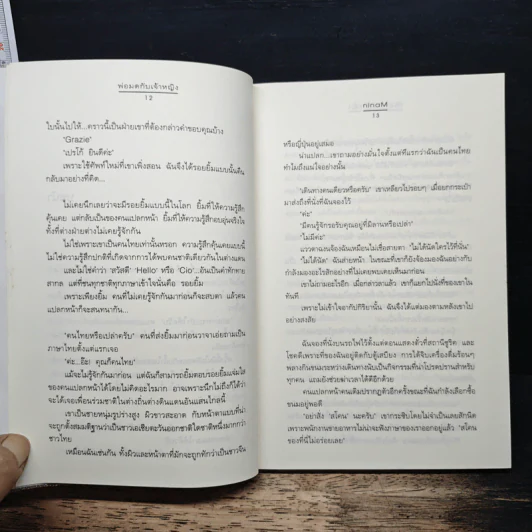 พ่อมดกับเจ้าหญิง
12
ใบนั้นไปให้...คราวนี้เป็นฝ่ายเขาที่ต้องกล่าวคำขอบคุณบ้าง
"Grazie"
"เปรโก้ ยินดีค่ะ"
เพราะใช้ศัพท์ใหม่ที่เขาเพิ่งสอน ฉันจึงได้รอยยิ้มแบบนั้นคืน
กลับมาอย่างที่คิด...
ไม่เคยนึกเลยว่าจะมียิ้มแบบนี้ในโลก ยิ้มที่ให้ความรู้สึก
คุ้นเคย แต่กลับเป็นของคนแปลกหน้า ยิ้มที่ให้ความรู้สึกอบอุ่นจริงใจ
ทั้งที่ต่างฝ่ายต่างไม่เคยรู้จักกัน
ไม่ใช่เพราะเขาเป็นคนไทยเท่านั้นหรอก ความรู้สึกคุ้นเคยแบบนี้
ไม่ใช่ความรู้สึกปกติที่เกิดจากการได้พบคนชาติเดียวกันในต่างแดน
และไม่ใช่คำว่า 'สวัสดี' 'Hello' หรือ 'Cio'...อันเป็นคำทักทาย
สากล แต่ที่ชนทุกชาติทุกภาษาเข้าใจนั่นคือ รอยยิ้ม
เพราะเพียงยิ้ม คนที่ไม่เคยรู้จักกันมาก่อนก็จะสบตา แล้วคน
แปลกหน้าก็จะสนทนากัน...
"คนไทยหรือเปล่าครับ" คนที่ส่งยิ้มมาก่อนวาจาเอ่ยถามเป็น
ภาษาไทยตั้งแต่แรกเจอ
"ค่ะ...อ๊ะ! คุณก็คนไทย"
แม้จะไม่รู้จักกันมาก่อน แต่ฉันก็สามารถยิ้มตอบรอยยิ้มแจ่มใส
ของคนแปลกหน้าได้โดยไม่คิดอะไรมาก อาจเพราะนึกไม่ถึงก็ได้ว่า
จะได้เจอเพื่อนร่วมชาติในต่างถิ่นต่างดินแดนอันแสนไกลนี้
เขาเป็นชายหนุ่มรูปร่างสูง ผิวขาวสะอาด กับหน้าตาแบบที่น่า
จะถูกตั้งสมมติฐานว่าเป็นชาวเอเชียตะวันออกชาติใดชาติหนึ่งมากกว่า
ชาวไทย
เหมือนฉันเช่นกัน ทั้งผิวและหน้าตาที่มักจะถูกทักว่าเป็นชาวจีน
Manin
13
หรือญี่ปุ่นอยู่เสมอ
น่าแปลก...เขาถามอย่างมั่นใจตั้งแต่ทีแรกว่าฉันเป็นคนไทย
ทำไมถึงแน่ใจอย่างนั้น
"เดินทางคนเดียวหรือครับ" เขาเหลียวไปรอบๆ เมื่อยกกระเป๋า
มาส่งถึงที่นั่งที่ฉันจองไว้
"ค่ะ"
"มีคนรู้จักรอรับคุณอยู่ที่มิลานหรือเปล่า"
"ไม่มีค่ะ"
แววตาฉงนจ้องฉันเหมือนไม่เชื่อสายตา "ไม่ได้นัดใครไว้ที่นั่น"
"ไม่ได้นัด" ฉันส่ายหน้า ในขณะที่เขาก็ยังจ้องมองฉันอย่างกับ
กำลังมองอะไรสักอย่างที่ไม่เคยพบเคยเห็นมาก่อน
เขาไม่ถามอะไรอีก เมื่อกล่าวลาแล้ว เขาก็แยกไปนั่งที่ของเขาใน
ทันที
เพราะไม่เข้าใจอากัปกิริยานั้น ฉันจึงได้แต่มองตามหลังเขาไป
อย่างสงสัย
ฉันจองที่นั่งบนรถไฟไว้ตั้งแต่ตอนแสดงตัวที่สถานีซูริค และ
โชคดีเพราะที่ของฉันอยู่ติดกับตู้เสบียง การได้จิบเครื่องดื่มร้อนๆ
พลางกินขนมระหว่างเดินทางนับเป็นกิจกรรมที่น่าโปรดปรานสำหรับ
ทุกคน แถมยังช่วยฆ่าเวลาได้ดีอีกด้วย
คนแปลกหน้าคนเดิมปรากฏตัวอีกครั้งขณะที่ฉันกำลังเลือกซื้อ
ขนมอยู่พอดี
"อย่าสั่ง 'สโคน' นะครับ" เขากระซิบโดยไม่จำเป็นเลยสักนิด
เพราะพนักงานขายอาหารไม่น่าจะฟังภาษาของเราออกอยู่แล้ว "สโคน
ของที่นี่ไม่อร่อยเลย"